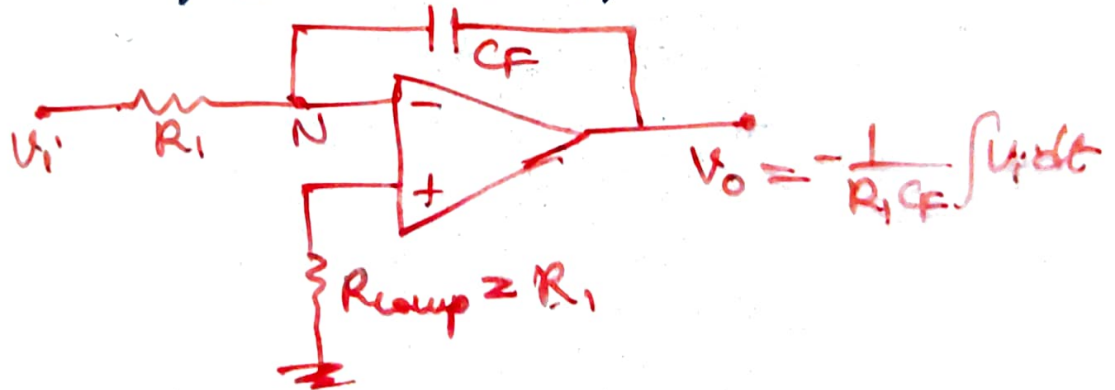 CF
Vi
R1
N
−
+
Vo = -1/(R1 CF) ∫Vi dt
Rcomp = R1